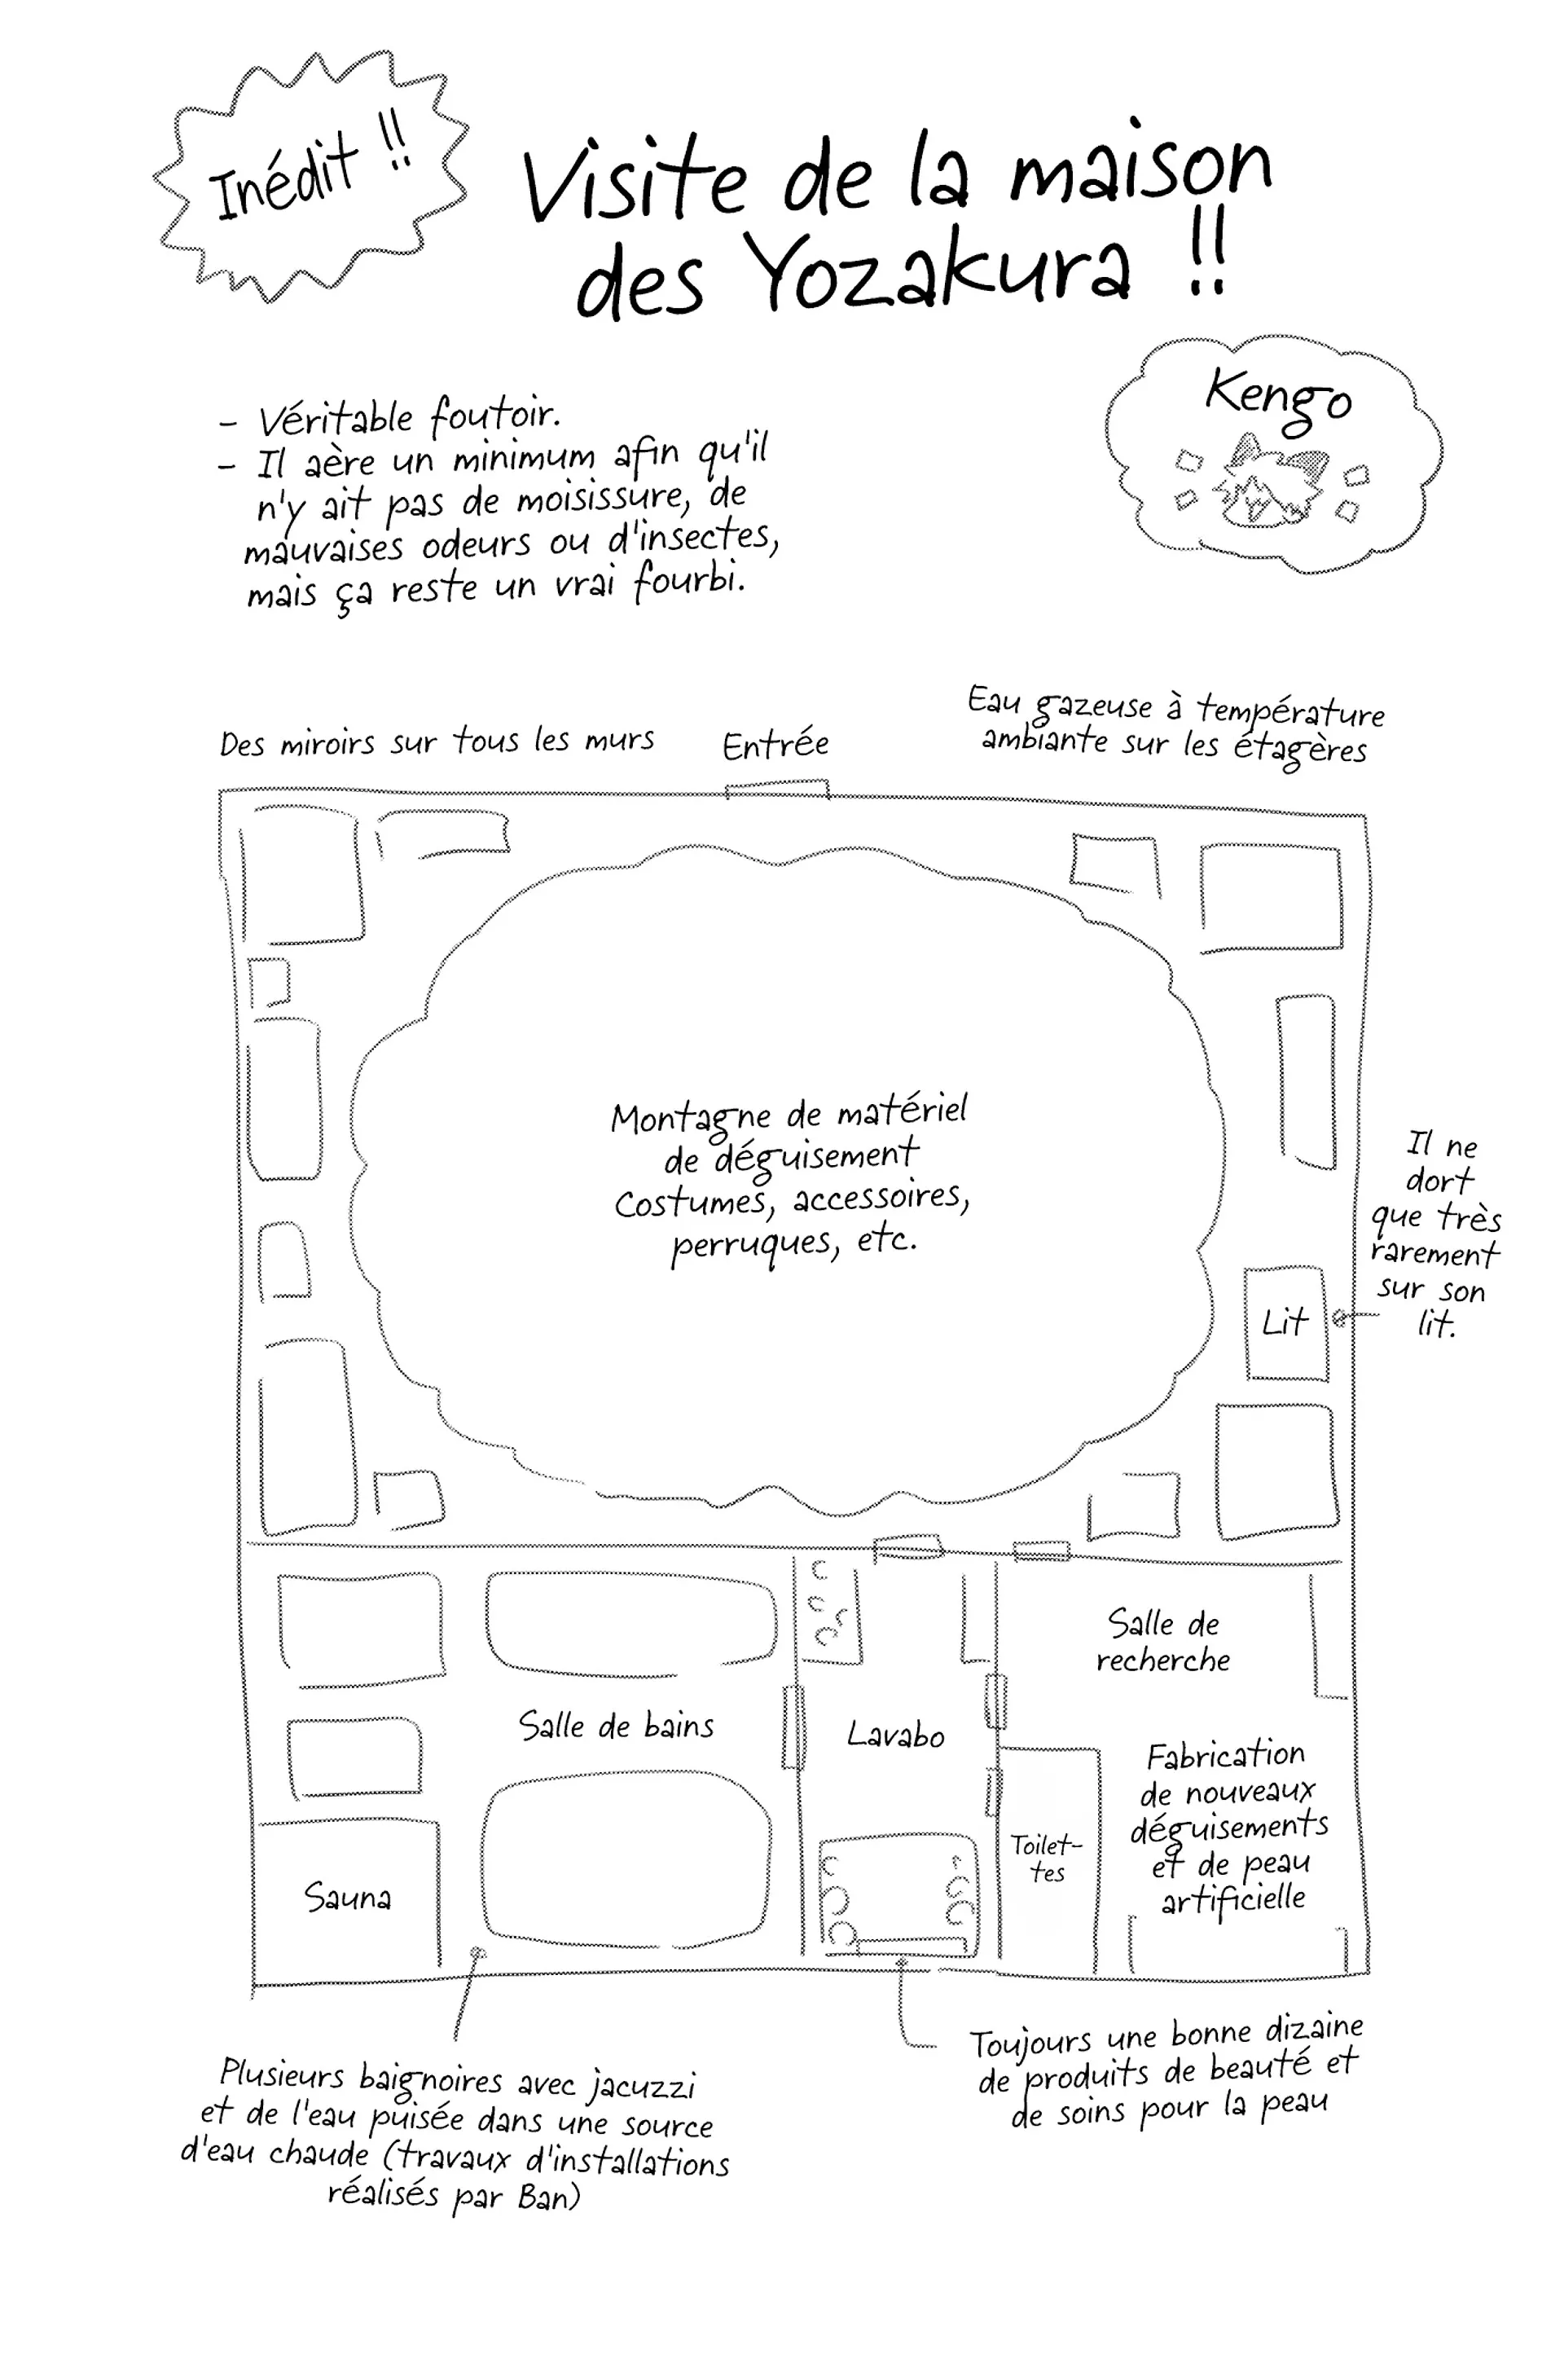 Inédit !!
Visite de la maison
des Yozakura !!
Kengo
- Véritable foutoir.
- Il aère un minimum afin qu'il
n'y ait pas de moisissure, de
mauvaises odeurs ou d'insectes,
mais ça reste un vrai fourbi.
Des miroirs sur tous les murs
Entrée
Eau gazeuse à température
ambiante sur les étagères
Montagne de matériel
de déguisement
Costumes, accessoires,
perruques, etc.
Il ne
dort
que très
rarement
sur son
lit.
Lit
Salle de bains
Lavabo
Salle de
recherche
Fabrication
de nouveaux
déguisements
et de peau
artificielle
Toilet-
tes
Sauna
Plusieurs baignoires avec jacuzzi
et de l'eau puisée dans une source
d'eau chaude (travaux d'installations
réalisés par Ban)
Toujours une bonne dizaine
de produits de beauté et
de soins pour la peau